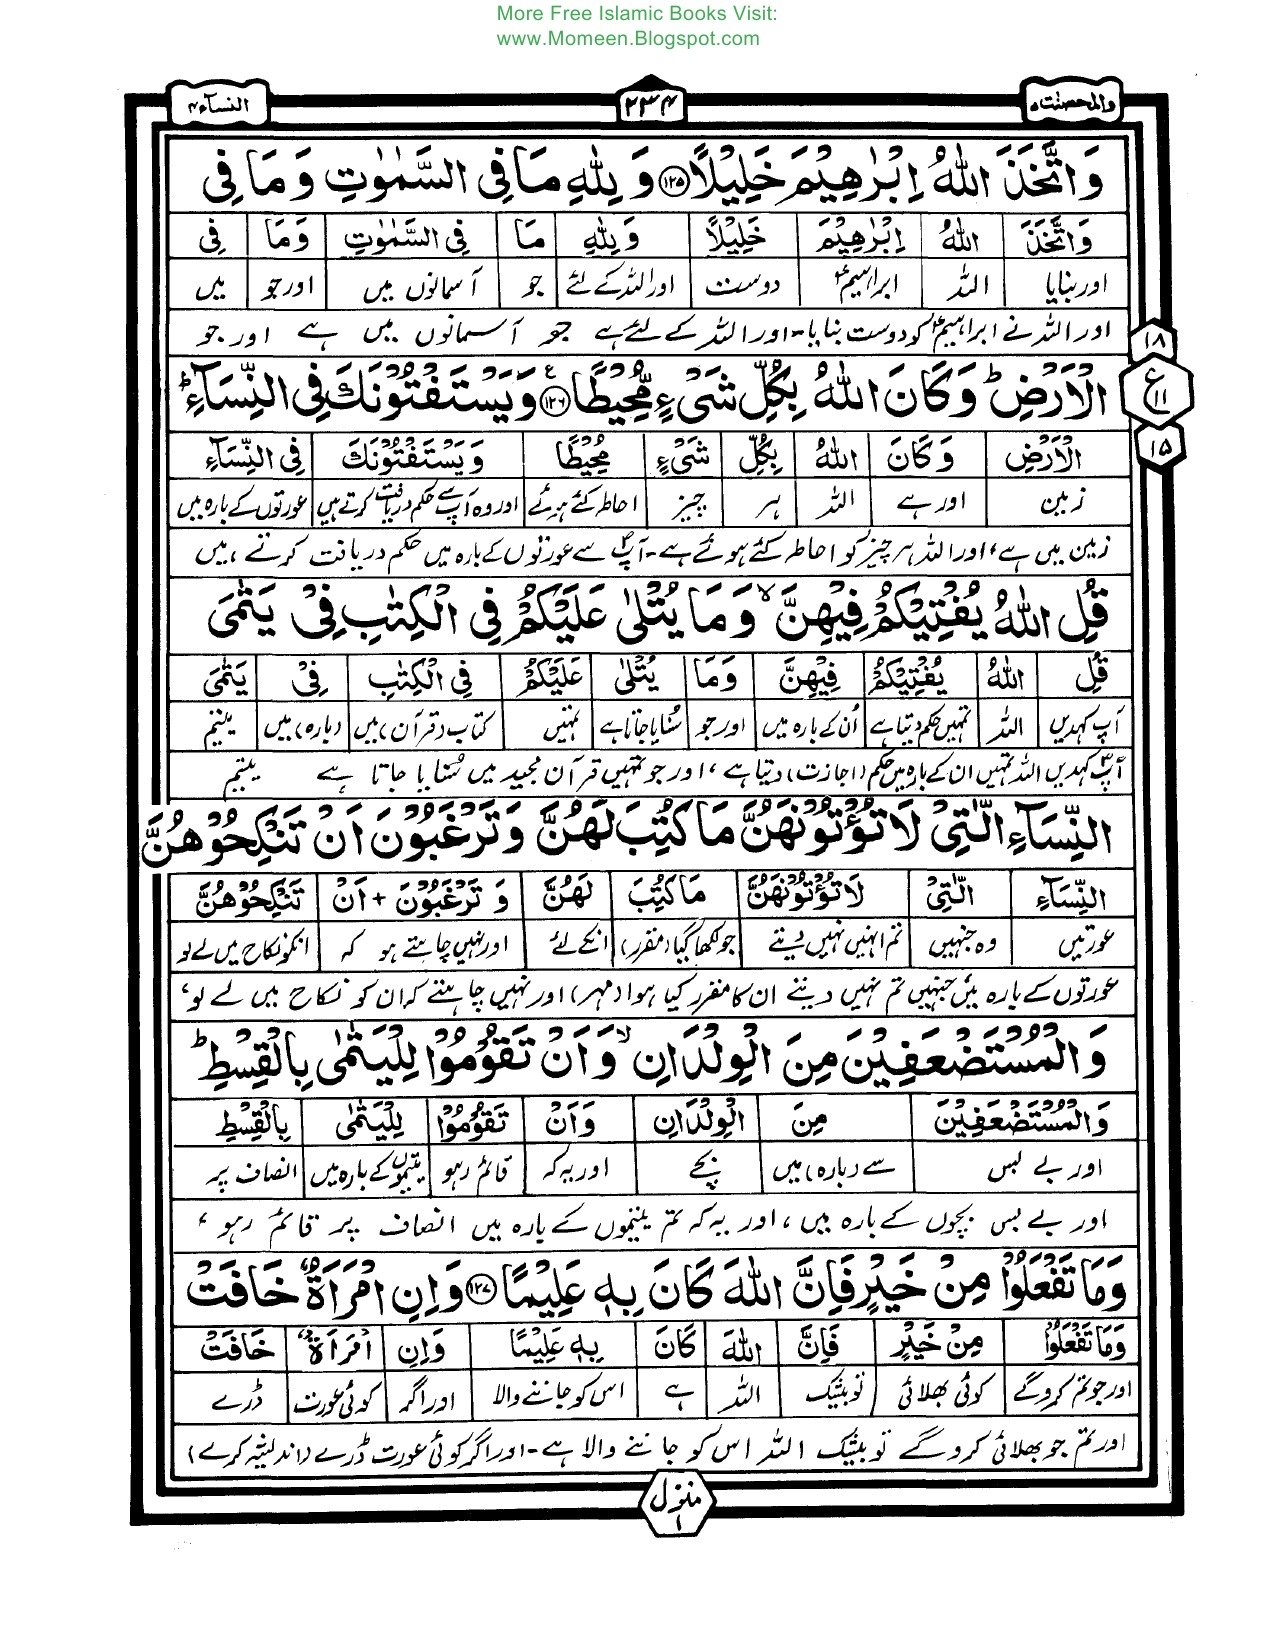 More Free Islamic Books Visit:
www.Momeen.Blogspot.com
والمحصنت ۵
۲۳۴
النسآء ۴
وَاتَّخَذَ اللّٰهُ اِبْرٰهِيْمَ خَلِيْلًا ﴿۱۲۵﴾ وَ لِلّٰهِ مَا فِى السَّمٰوٰتِ وَ مَا فِى
وَاتَّخَذَ اللّٰهُ اِبْرٰهِيْمَ خَلِيْلًا وَ لِلّٰهِ مَا فِى السَّمٰوٰتِ وَ مَا فِى
اور بنایا اللہ ابراہیمؑ دوست اور اللہ کے لئے جو آسمانوں میں اور جو میں
اور اللہ نے ابراہیمؑ کو دوست بنایا۔ اور اللہ کے لئے ہے جو آسمانوں میں ہے اور جو
۱۸
الْاَرْضِ ؕ وَ كَانَ اللّٰهُ بِكُلِّ شَىْءٍ مُّحِيْطًا ﴿۱۲۶﴾ ع وَيَسْتَفْتُوْنَكَ فِى النِّسَآءِ ؕ
ع
۱۱
الْاَرْضِ وَ كَانَ اللّٰهُ بِكُلِّ شَىْءٍ مُحِيْطًا وَيَسْتَفْتُوْنَكَ فِى النِّسَآءِ
۱۵
زمین اور ہے اللہ ہر چیز احاطہ کئے ہوئے اور وہ آپ سے حکم دریافت کرتے ہیں عورتوں کے بارہ میں
زمین میں ہے، اور اللہ ہر چیز کو احاطہ کئے ہوئے ہے۔ آپؐ سے عورتوں کے بارہ میں حکم دریافت کرتے ہیں
قُلِ اللّٰهُ يُفْتِيْكُمْ فِيْهِنَّ ۙ وَ مَا يُتْلٰى عَلَيْكُمْ فِى الْكِتٰبِ فِىْ يَتٰمَى
قُلِ اللّٰهُ يُفْتِيْكُمْ فِيْهِنَّ وَ مَا يُتْلٰى عَلَيْكُمْ فِى الْكِتٰبِ فِىْ يَتٰمَى
آپ کہدیں اللہ تمہیں حکم دیتا ہے اُن کے بارہ میں اور جو سُنایا جاتا ہے تمہیں کتاب (قرآن) میں (بارہ) میں یتیم
آپؐ کہدیں اللہ تمہیں ان کے بارہ میں حکم (اجازت) دیتا ہے، اور جو تمہیں قرآن مجید میں سُنایا جاتا ہے یتیم
النِّسَآءِ الّٰتِىْ لَا تُؤْتُوْنَهُنَّ مَا كُتِبَ لَهُنَّ وَ تَرْغَبُوْنَ اَنْ تَنْكِحُوْهُنَّ
النِّسَآءِ الّٰتِىْ لَا تُؤْتُوْنَهُنَّ مَا كُتِبَ لَهُنَّ وَ تَرْغَبُوْنَ + اَنْ تَنْكِحُوْهُنَّ
عورتیں وہ جنہیں تم انہیں نہیں دیتے جو لکھا گیا (مقرر) انکے لئے اور نہیں چاہتے ہو کہ انکو نکاح میں لے لو
عورتوں کے بارہ میں جنہیں تم نہیں دیتے ان کا مقرر کیا ہوا (مہر) اور نہیں چاہتے کہ ان کو نکاح میں لے لو،
وَ الْمُسْتَضْعَفِيْنَ مِنَ الْوِلْدَانِ ۙ وَ اَنْ تَقُوْمُوْا لِلْيَتٰمٰى بِالْقِسْطِ ؕ
وَ الْمُسْتَضْعَفِيْنَ مِنَ الْوِلْدَانِ وَ اَنْ تَقُوْمُوْا لِلْيَتٰمٰى بِالْقِسْطِ
اور بے بس سے (بارہ) میں بچے اور یہ کہ قائم رہو یتیموں کے بارہ میں انصاف پر
اور بے بس بچوں کے بارہ میں، اور یہ کہ تم یتیموں کے بارہ میں انصاف پر قائم رہو،
وَمَا تَفْعَلُوْا مِنْ خَيْرٍ فَاِنَّ اللّٰهَ كَانَ بِهٖ عَلِيْمًا ﴿۱۲۷﴾ وَ اِنِ امْرَاَةٌ خَافَتْ
وَمَا تَفْعَلُوْا مِنْ خَيْرٍ فَاِنَّ اللّٰهَ كَانَ بِهٖ عَلِيْمًا وَ اِنِ امْرَاَةٌ خَافَتْ
اور جو تم کرو گے کوئی بھلائی تو بیشک اللہ ہے اس کو جاننے والا اور اگر کوئی عورت ڈرے
اور تم جو بھلائی کرو گے تو بیشک اللہ اس کو جاننے والا ہے۔ اور اگر کوئی عورت ڈرے (اندیشہ کرے)
منزل
۱